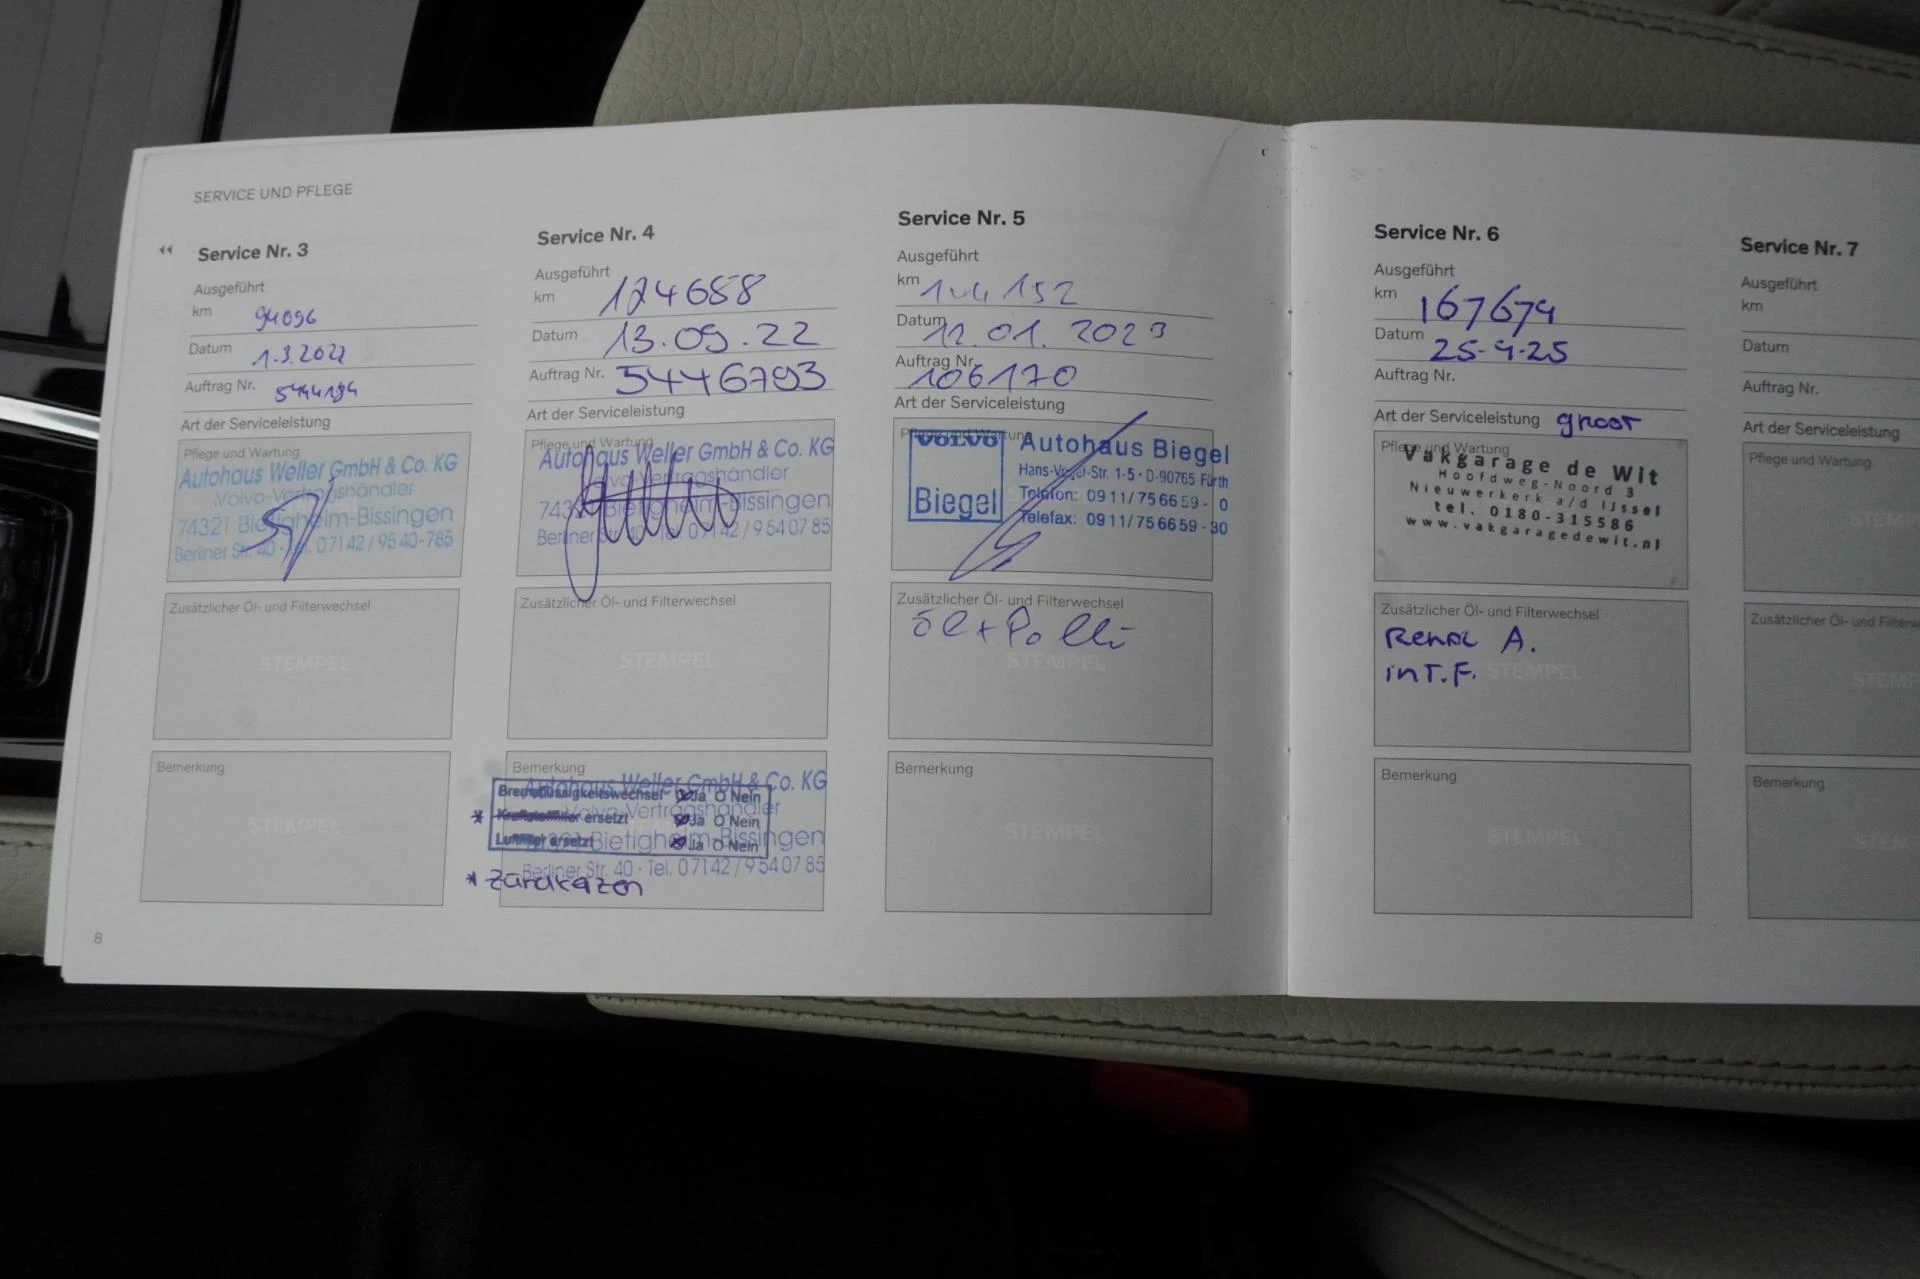 SERVICE UND PFLEGE
Service Nr. 3
Ausgeführt
km 94096
Datum 1.3.2022
Auftrag Nr. 5444194
Art der Serviceleistung
Pflege und Wartung
Autohaus Weller GmbH & Co. KG
Volvo-Vertragshändler
74321 Bietigheim-Bissingen
Berliner Str. 40 · Tel. 07142/9540-785
Zusätzlicher Öl- und Filterwechsel
STEMPEL
Bemerkung
STEMPEL
8
Service Nr. 4
Ausgeführt
km 124658
Datum 13.09.22
Auftrag Nr. 5446793
Art der Serviceleistung
Pflege und Wartung
Autohaus Weller GmbH & Co. KG
Volvo-Vertragshändler
74321 Bietigheim-Bissingen
Berliner Str. 40 · Tel. 07142/9540785
Zusätzlicher Öl- und Filterwechsel
STEMPEL
Bemerkung
Autohaus Weller GmbH & Co. KG
Bremsflüssigkeitswechsel Ja O Nein
Volvo-Vertragshändler
* Kraftstofffilter ersetzt Ja O Nein
Luftfilter ersetzt Ja O Nein
Bietigheim-Bissingen
Berliner Str. 40 · Tel. 07142/9540785
* Zündkerzen
Service Nr. 5
Ausgeführt
km 144152
Datum 12.01.2023
Auftrag Nr. 106170
Art der Serviceleistung
Pflege und Wartung
VOLVO
Biegel
Autohaus Biegel
Hans-Vogel-Str. 1-5 · D-90765 Fürth
Telefon: 0911/756659-0
Telefax: 0911/756659-30
Zusätzlicher Öl- und Filterwechsel
Öl + Polli
STEMPEL
Bemerkung
STEMPEL
Service Nr. 6
Ausgeführt
km 167679
Datum 25-4-25
Auftrag Nr.
Art der Serviceleistung groot
Pflege und Wartung
Vakgarage de Wit
Hoofdweg-Noord 3
Nieuwerkerk a/d IJssel
tel. 0180-315586
www.vakgaragedewit.nl
Zusätzlicher Öl- und Filterwechsel
A.
inT.F.
STEMPEL
Bemerkung
STEMPEL
Service Nr. 7
Ausgeführt
km
Datum
Auftrag Nr.
Art der Serviceleistung
Pflege und Wartung
STEMP
Zusätzlicher Öl- und Filterw
STEMP
Bemerkung
STEMP